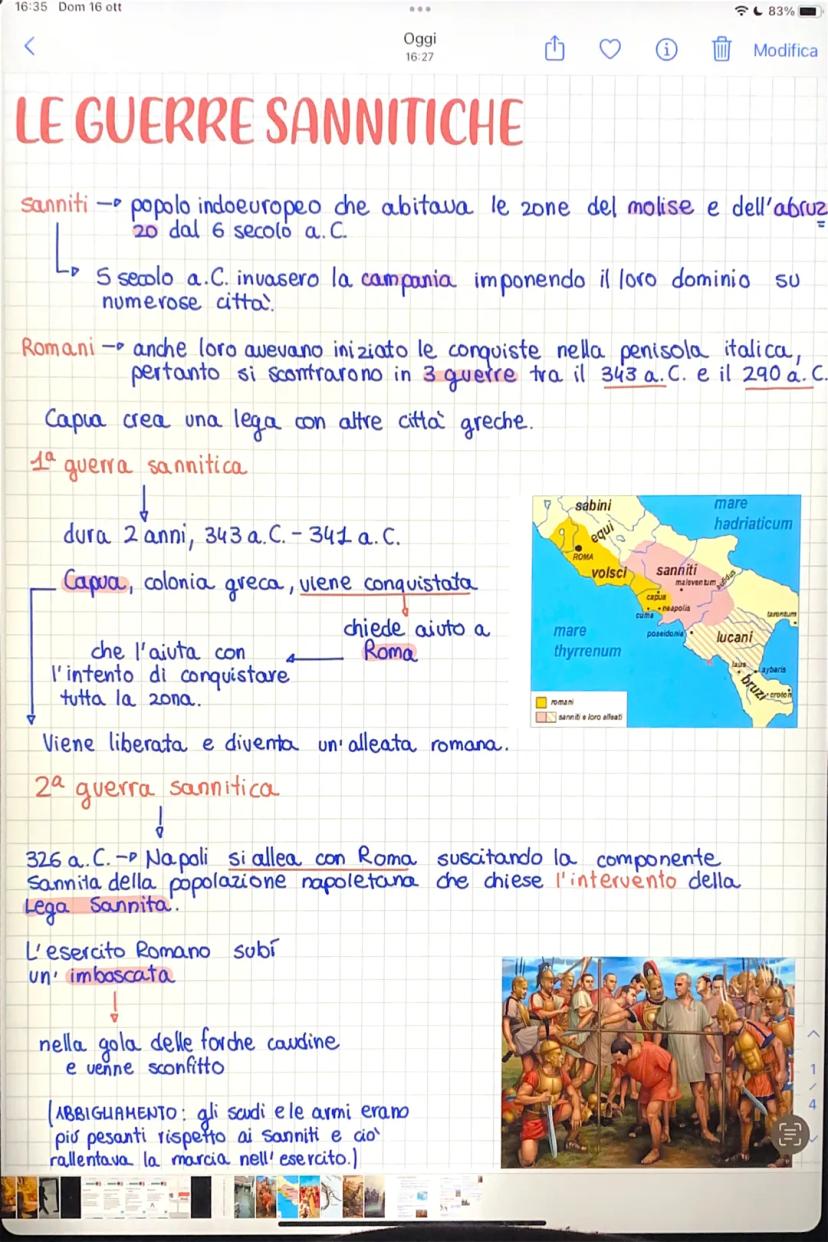 16:35 Dom 16 ott
83%
Oggi
16:27
Modifica
LE GUERRE SANNITICHE
sanniti → popolo indoeuropeo che abitava le zone del molise e dell'abruz
zo dal 6 secolo a.C.
5 secolo a.C. invasero la campania imponendo il loro dominio su
numerose città.
Romani → anche loro avevano iniziato le conquiste nella penisola italica,
pertanto si scontrarono in 3 guerre tra il 343 a.C. e il 290 a.C.
Capua crea una lega con altre città greche.
1ª guerra sannitica
dura 2 anni, 343 a.C. - 341 a.C.
Capua, colonia greca, viene conquistata
chiede aiuto a
Roma
che l'aiuta con
l'intento di conquistare
tutta la zona.
Viene liberata e diventa un'alleata romana.
sabini
mare
hadriaticum
equi
ROMA
volsci
sanniti
maleventum
aufidus
capua
cuma
neapolis
tarentum
mare
thyrrenum
poseidonia
lucani
laus
sybaris
bruzi
croton
romani
sanniti e loro alleati
2ª guerra sannitica
326 a.C. → Napoli si allea con Roma suscitando la componente
Sannita della popolazione napoletana che chiese l'intervento della
Lega Sannita.
L'esercito Romano subí
un' imboscata
nella gola delle forche caudine
e venne sconfitto
(ABBIGLIAMENTO: gli scudi e le armi erano
piú pesanti rispetto ai sanniti e ciò
rallentava la marcia nell'esercito.)
1
/
4